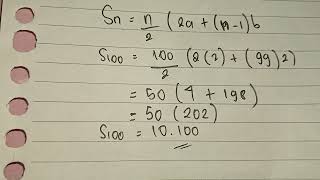 Sn = n/2 (2a + (n-1)b
S100 = 100/2 (2(2) + (99)2)
= 50 (4 + 198)
= 50 (202)
S100 = 10.100